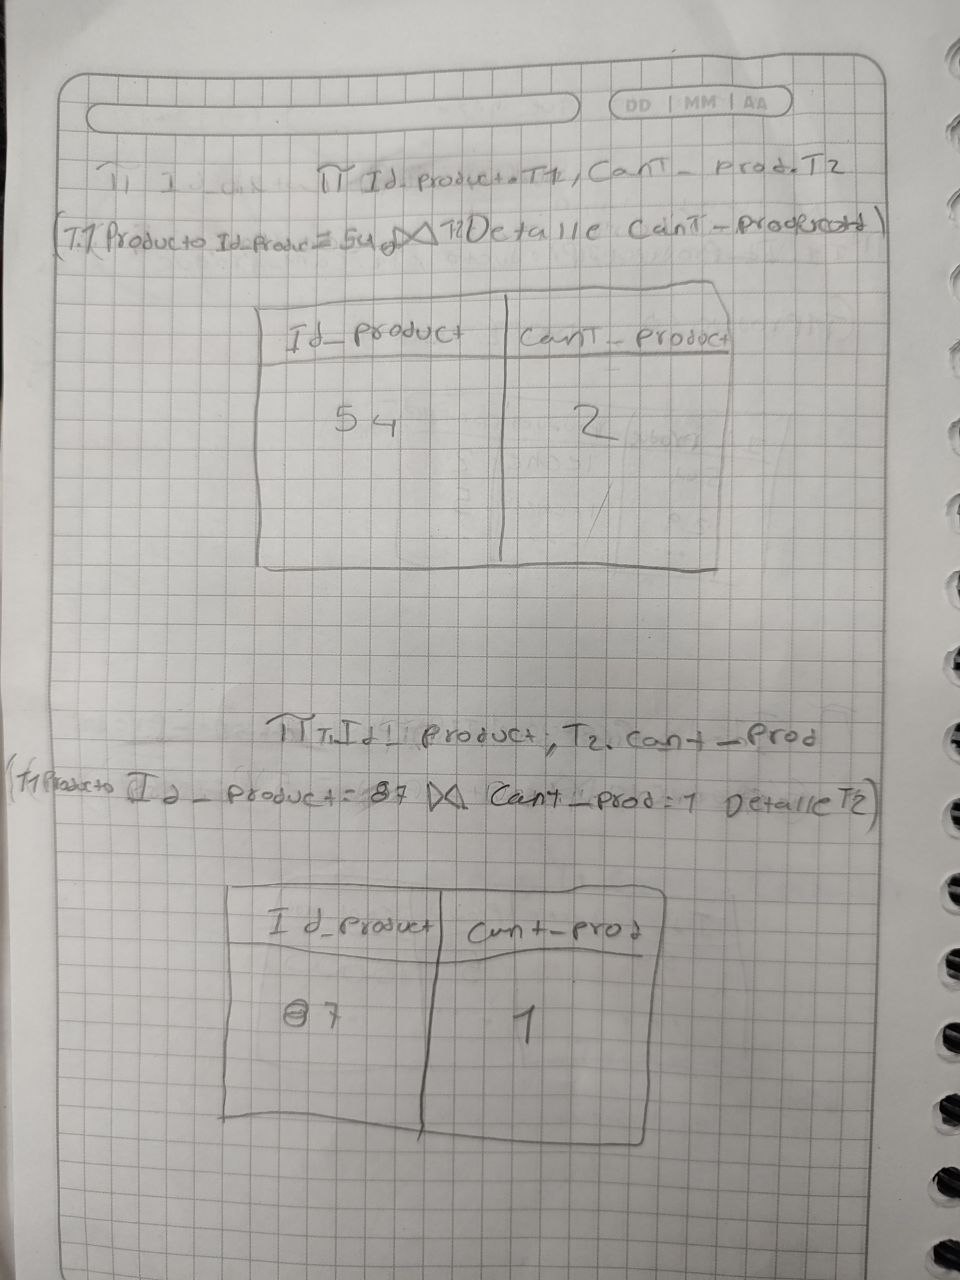 DD | MM | AA
π Id product.T1, CanT_ prod.T2
(T.1 Producto Id_produc = 54 ⋈ T2 Detalle CanT-
Id_product CanT_product
54 2
π T.Id_ product, T2.cant_prod
(T1 Producto Id_product= 87 ⋈ Cant_prod=1 Detalle T2)
Id_product Cant-prod
87 1